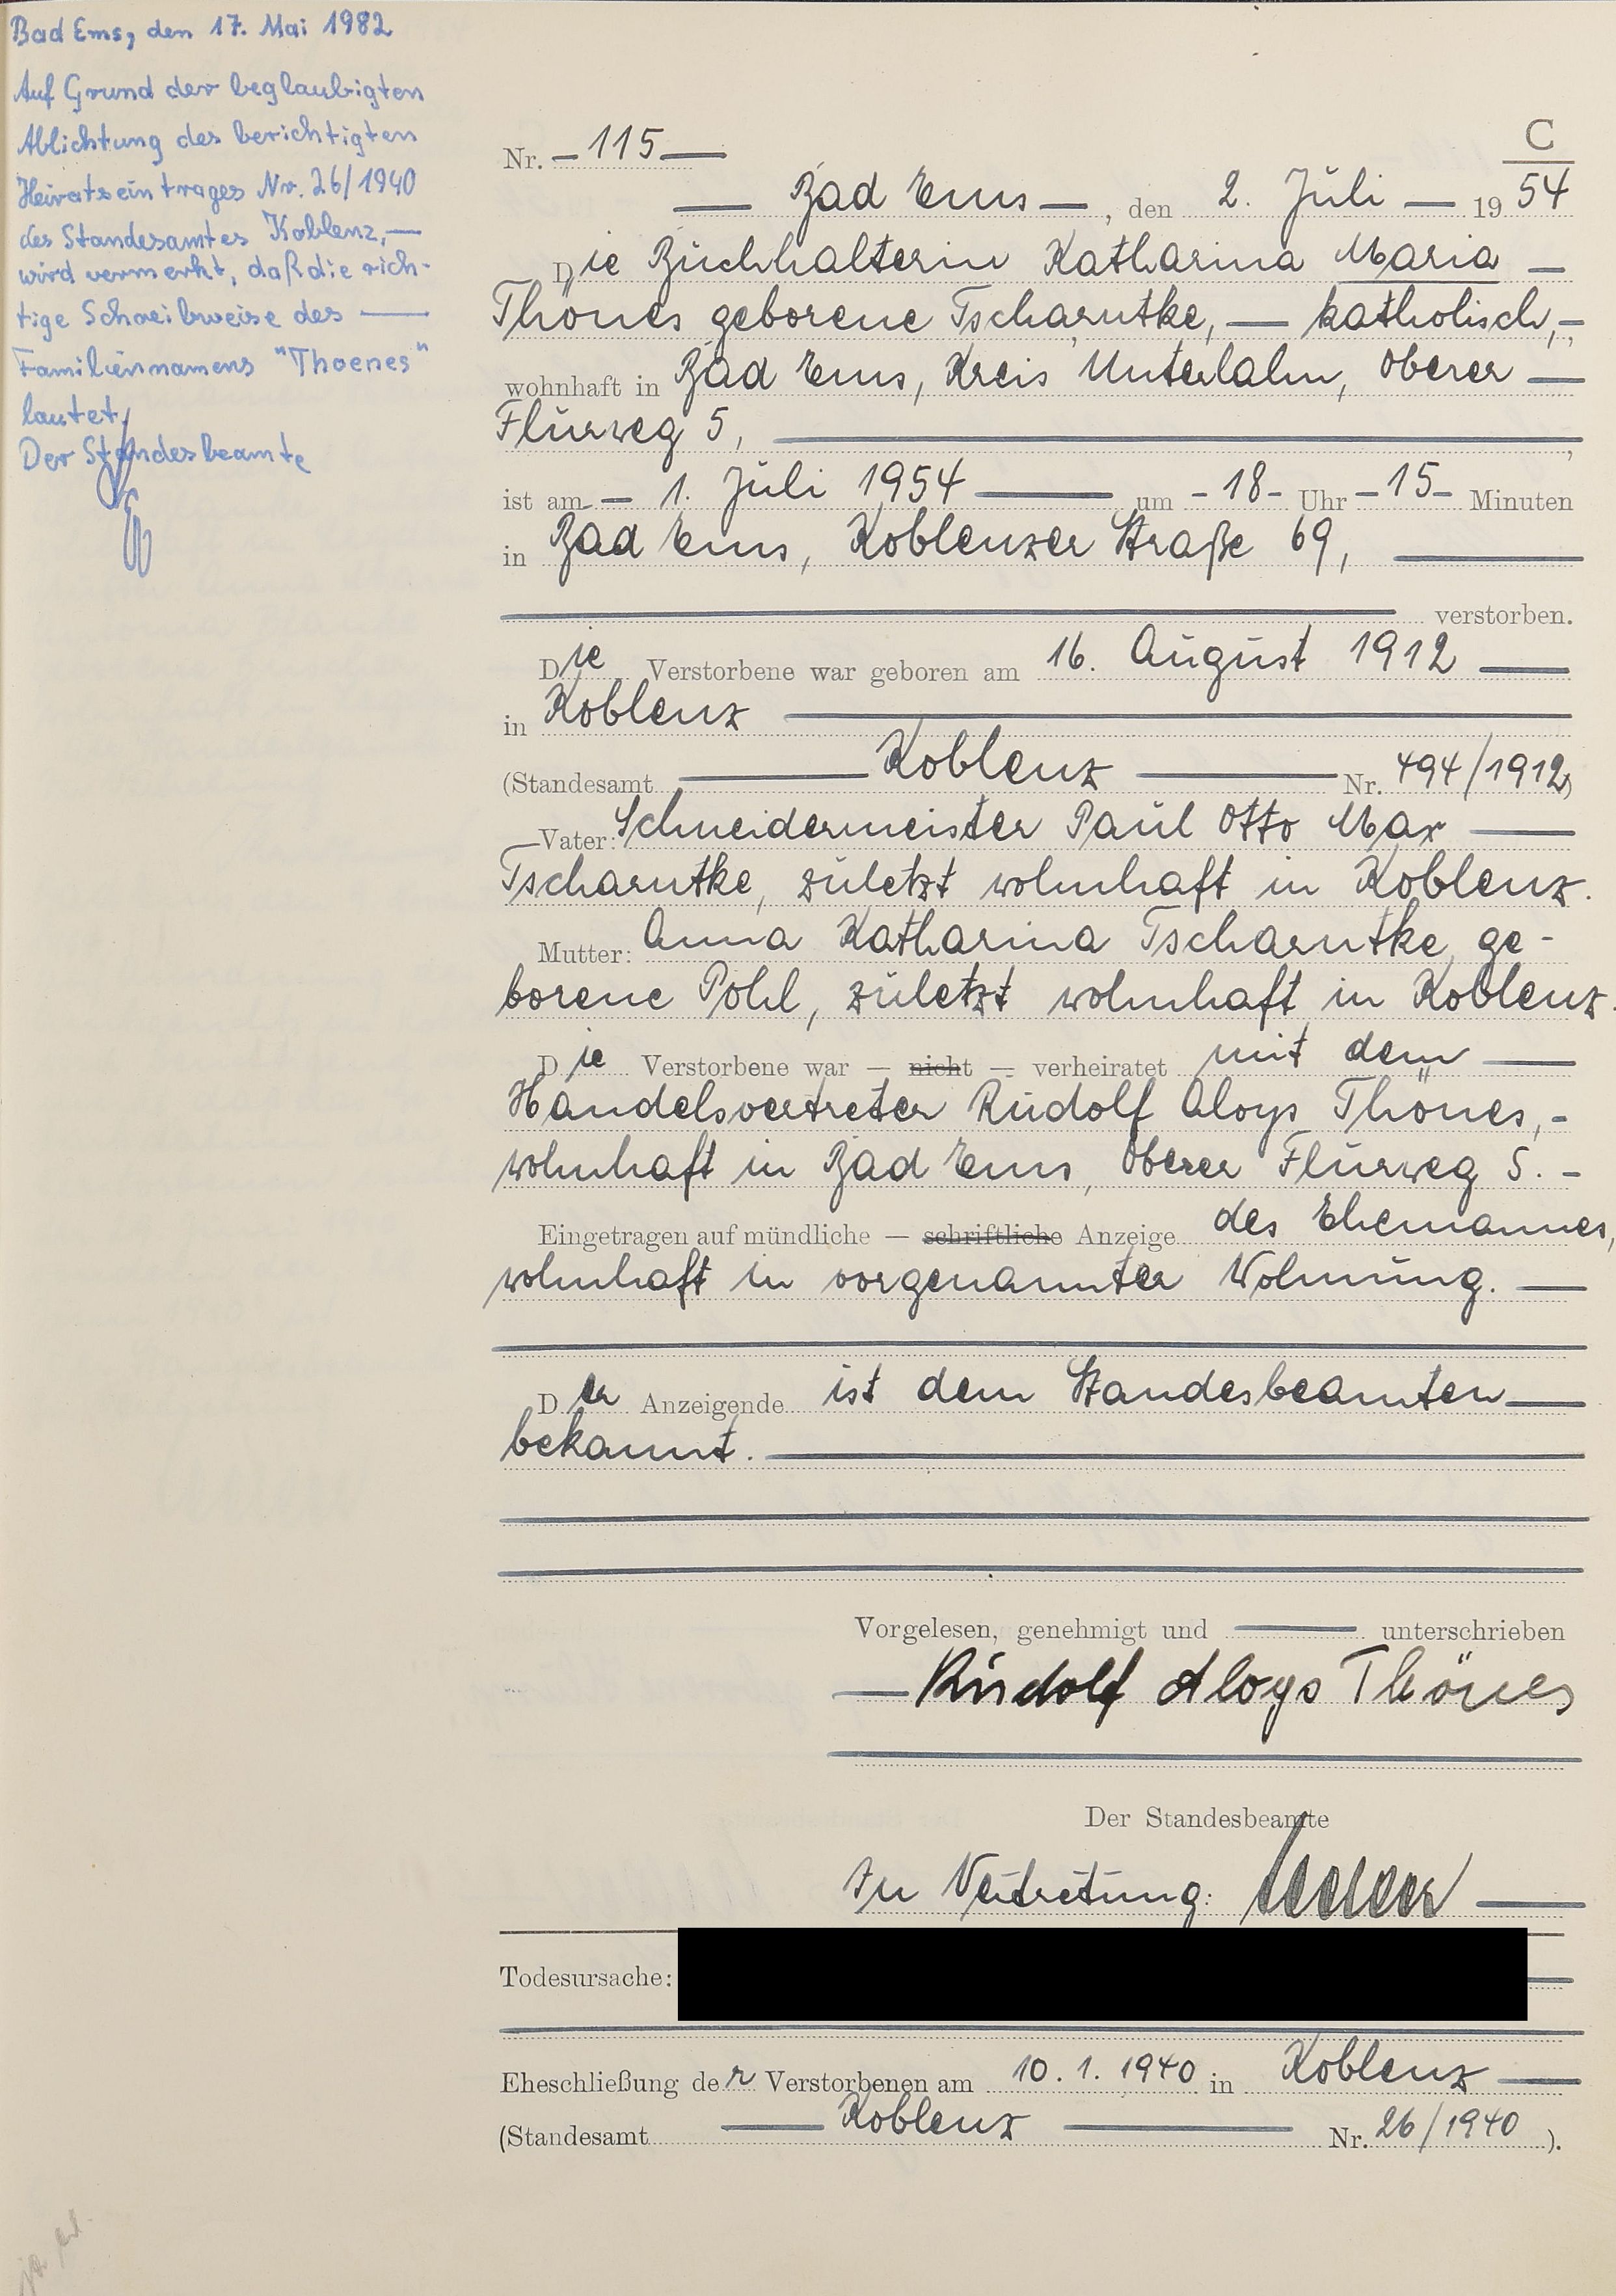 Bad Ems, den 17. Mai 1982
Auf Grund der beglaubigten
Ablichtung des berichtigten
Heiratseintrages Nr. 26/1940
des Standesamtes Koblenz,—
wird vermerkt, daß die rich-
tige Schreibweise des —
Familiennamens "Thoenes"
lautet.
Der Standesbeamte
C
Nr. — 115 —
— Bad Ems —, den 2. Juli — 19 54
Die Buchhalterin Katharina Maria —
Thönes geborene Tscharntke, — katholisch, —
wohnhaft in Bad Ems, Kreis Unterlahn, Oberer —
Flurweg 5, —
ist am — 1. Juli 1954 — um - 18 - Uhr - 15 - Minuten
in Bad Ems, Koblenzer Straße 69, —
— verstorben.
Die Verstorbene war geboren am 16. August 1912 —
in Koblenz —
(Standesamt — Koblenz — Nr. 494/1912)
Vater: Schneidermeister Paul Otto Max —
Tscharntke, zuletzt wohnhaft in Koblenz.
Mutter: Anna Katharina Tscharntke, ge-
borene Pohl, zuletzt wohnhaft in Koblenz.
Die Verstorbene war — nicht — verheiratet mit dem —
Handelsvertreter Rudolf Aloys Thönes, -
wohnhaft in Bad Ems, Oberer Flurweg 5. -
Eingetragen auf mündliche — schriftliche Anzeige des Ehemannes,
wohnhaft in vorgenannter Wohnung. —
Der Anzeigende ist dem Standesbeamten —
bekannt. —
Vorgelesen, genehmigt und — unterschrieben
— Rudolf Aloys Thönes
Der Standesbeamte
In Vertretung:
Todesursache:
Eheschließung der Verstorbenen am 10. 1. 1940 in Koblenz —
(Standesamt — Koblenz — Nr. 26/1940 ).